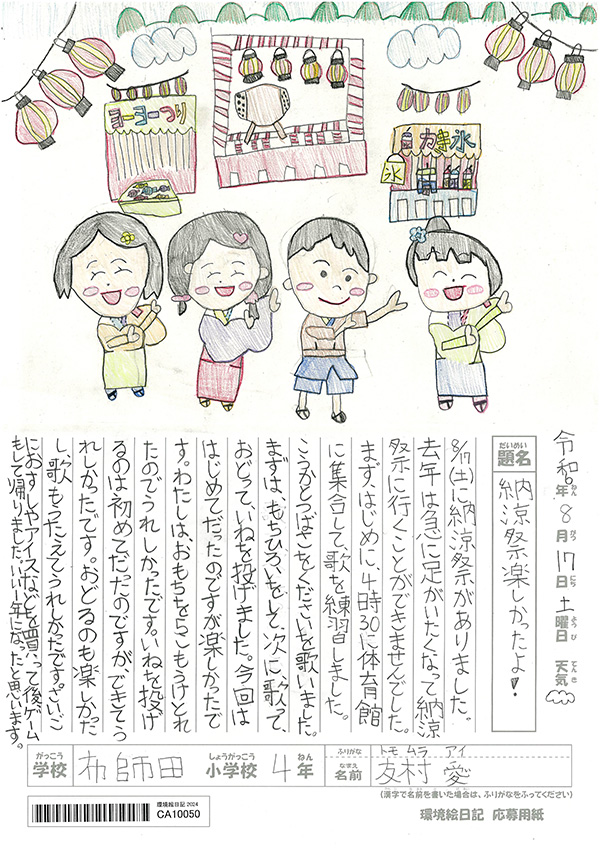 ヨーヨーつり
かき氷
氷
令和6年8月17日土曜日 天気
だいめい
題名
納涼祭楽しかったよ!
8/17(土)に納涼祭がありました。
去年は急に足がいたくなって納涼
祭に行くことができませんでした。
まず、はじめに、4時30に体育館
に集合して歌を練習しました。
こうかとつばさをくださいを歌いました。
まずは、もちひろいをして、次に歌って、
おどって、いねを投げました。今回は
はじめてだったのですが楽しかったで
す。わたしは、おもちを5こもうけとれ
たのでうれしかったです。いねを投げ
るのは初めてだったのですが、できてう
れしかったです。おどるのも楽しかった
し、歌もうたえてうれしかったです。さいご
におすしやアイスなどを買って後、ゲーム
もして帰りました。いい1年になったと思います。
がっこう
学校
布師田
しょうがっこう
小学校
4年
ふりがな
トモ ムラ アイ
なまえ
名前
友村 愛
(漢字で名前を書いた場合は、ふりがなをふってください)
環境絵日記 2024
CA10050
環境絵日記 応募用紙